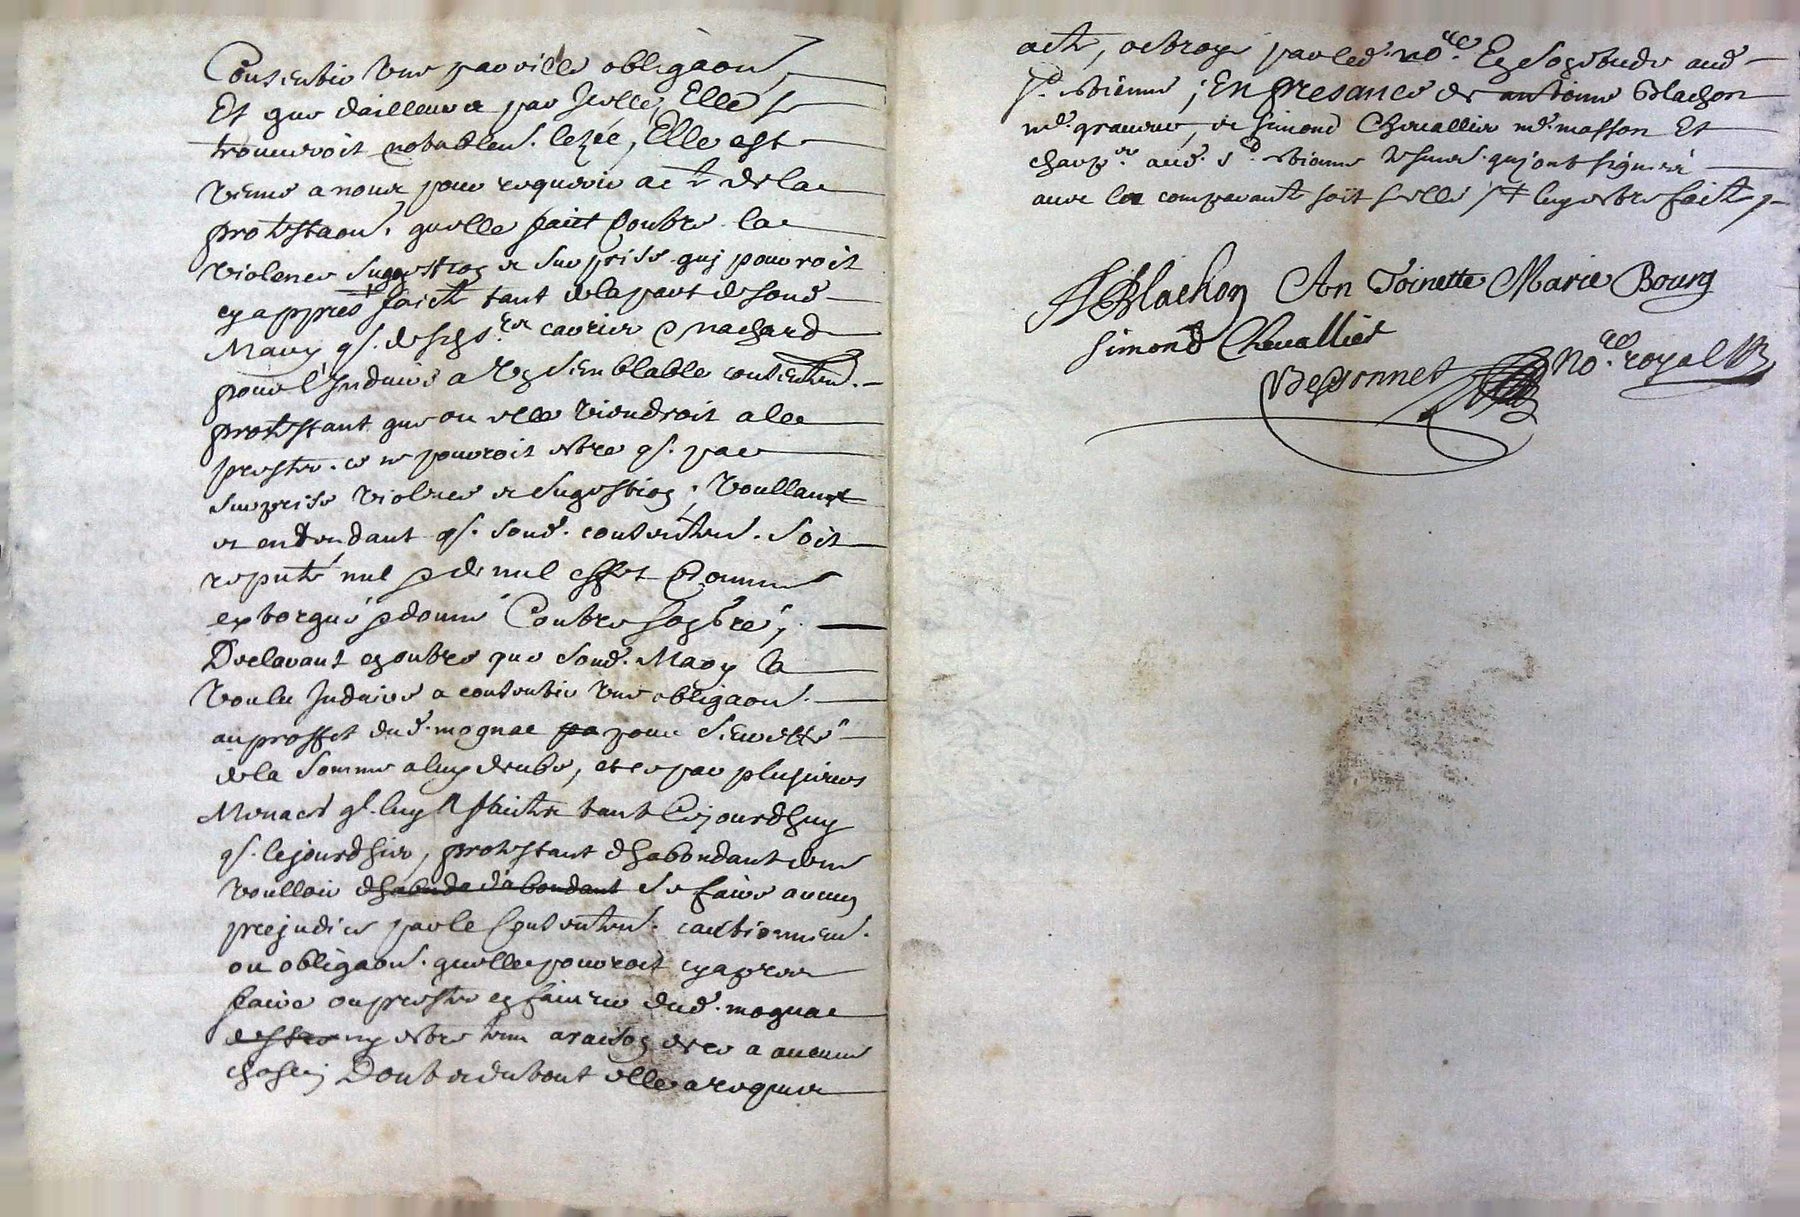 Consentir une pareille obligaon,
Et que dailleurs par Icelle, Elle se
trouveroit notablem. lezée, Elle est
venue a nous pour requerir acte de la
protestaon. quelle faict Contre la
violence suggestion et surprise quj pourroit
cy appres faicte tant de la part de sond.
Mary q. desd. srs caurier et nachard
pour l'Induire a un semblable consentem.
protestant que ou elle viendroit a le
prester. ce ne pourroit estre q. par
surprise violence et sugestion; Voullant
et entendant q. sond. consentem. soit
reputé nul et de nul effet Comme
extorqué et donné Contre son gré;
Declarant en outre que sond. Mary la
voulu Induire a consentir une obligaon.
au proffit dud. mognac pa pour seureté
de la somme a luy deube, et ce par plusieurs
Menaces q. luy a faictes tant ce jourdhuy
q. le jourdhier, protestant dhabondant de ne
voulloir dhabonda d'abondant se faire aucun
prejudice par le Consentem. cautionnem.
ou obligaon. quelle pourroit cy apres
faire ou prester en faveur dud. mognac
ny estre tenu a raison de ce a aucune
chose; Dont et du tout elle a requis
acte, octroyé par led. nore. En son estude aud.
st. etienne; En presance de antoine Blachon
md. graveur, et simond Chevallier md. masson Et
charp.er aud. st. etienne tesmoins quj ont signé
avec la comparante soit scellé luy estre fait
A Blachon An Toinette Marie Bourg
Simond Chevallier
Bessonnet no.re royal